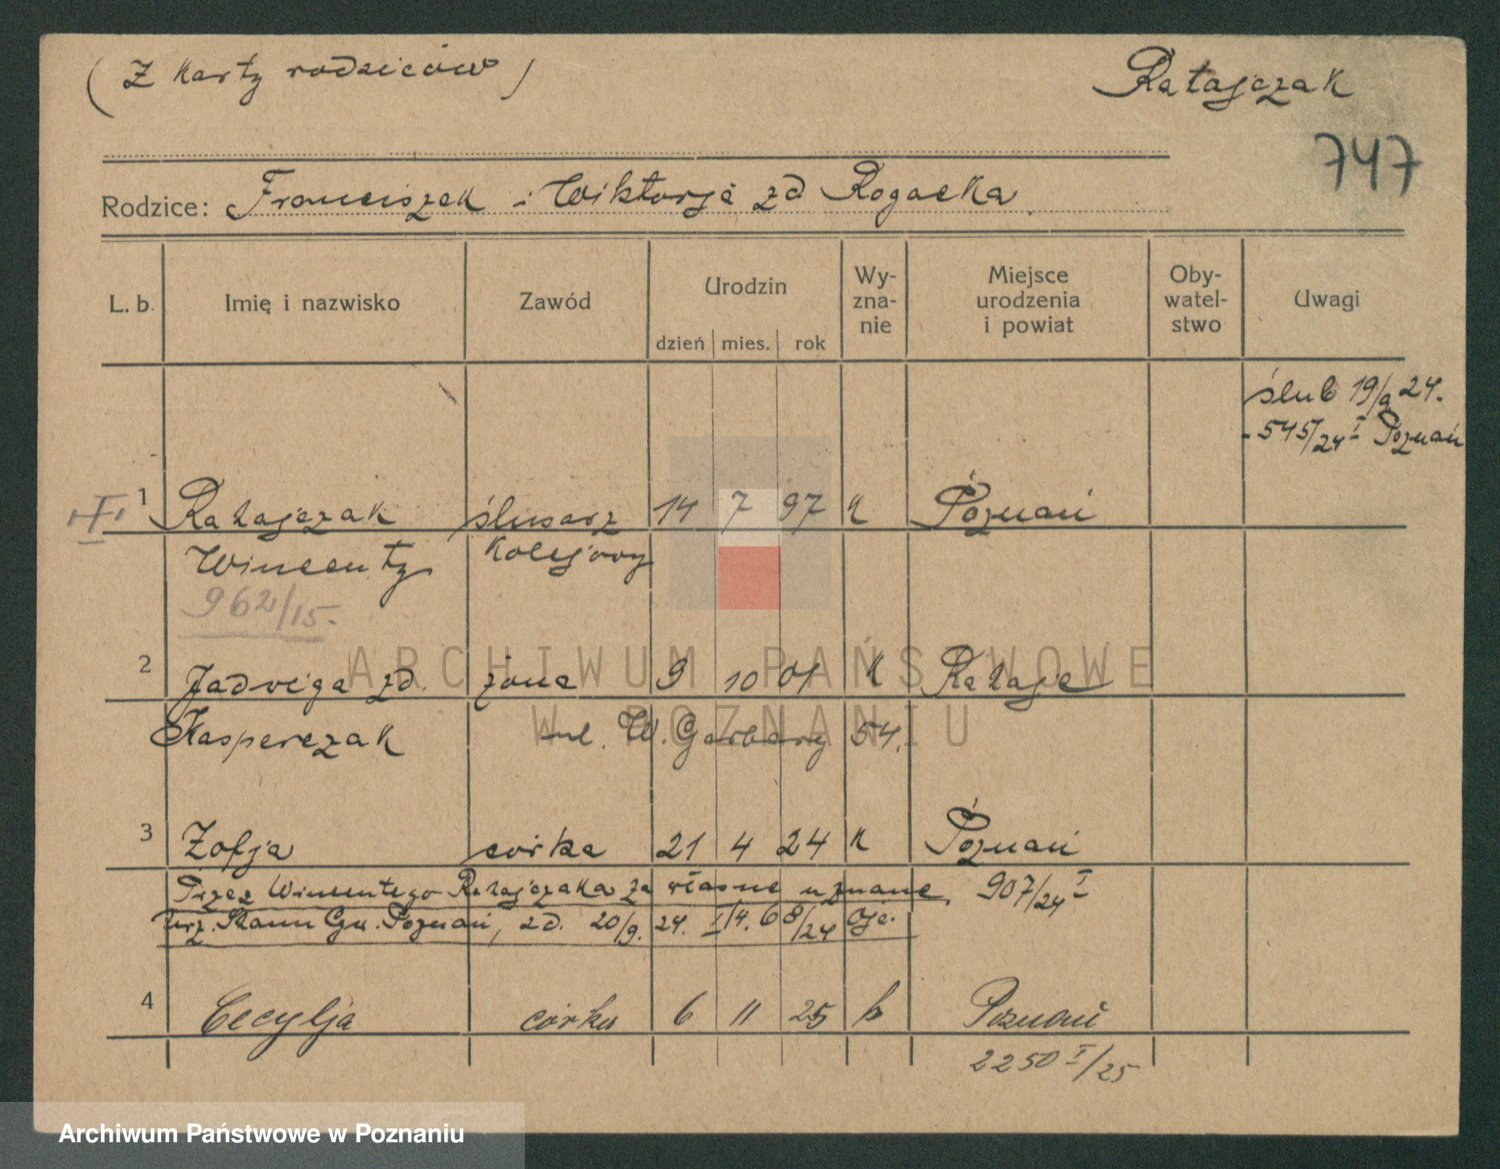 ( Z karty rodziców )
Ratajczak
747
Rodzice: Franciszek i Wiktorja zd Rogacka
L. b. Imię i nazwisko Zawód Urodzin dzień mies. rok Wy-zna-nie Miejsce urodzenia i powiat Oby-watel-stwo Uwagi
ślub 19/9 24.
545/24 I Poznań
1 Ratajczak ślusarz 14 7 97 k Poznań
Wincenty kolejowy
962/15.
2 Jadwiga zd. żona 9 10 01 k Rataje
Kasperczak ul. W. Garbary 54.
3 Zofja córka 21 4 24 k Poznań
Przez Wincentego Ratajczaka za własne uznane 907/24 I
Urz. Stanu Cyw. Poznań, zd. 20/9. 24. I/4. 68/24
4 Cecylja córka 6 11 25 k Poznań
2250 I/25
ARCHIWUM PAŃSTWOWE
W POZNANIU
Archiwum Państwowe w Poznaniu